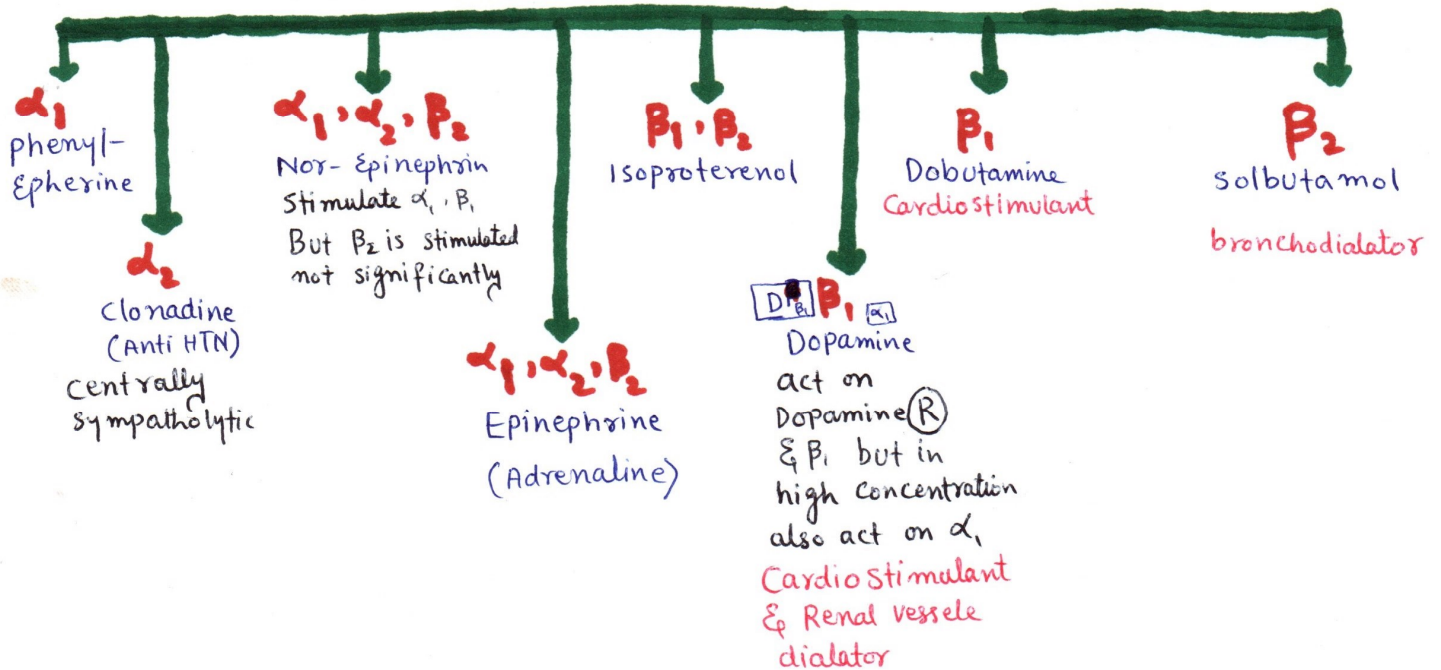 α1
phenyl-
Epherine
α2
Clonadine
(Anti HTN)
Centrally
sympatholytic
α1, α2, β2
Nor-Epinephrin
Stimulate α1, β1
But β2 is stimulated
not significantly
α1, α2, β2
Epinephrine
(Adrenaline)
β1, β2
Isoproterenol
D β1 β1 α1
Dopamine
act on
Dopamine R
& β1 but in
high concentration
also act on α1
Cardio stimulant
& Renal vessele
dialator
β1
Dobutamine
Cardiostimulant
β2
solbutamol
bronchodialator